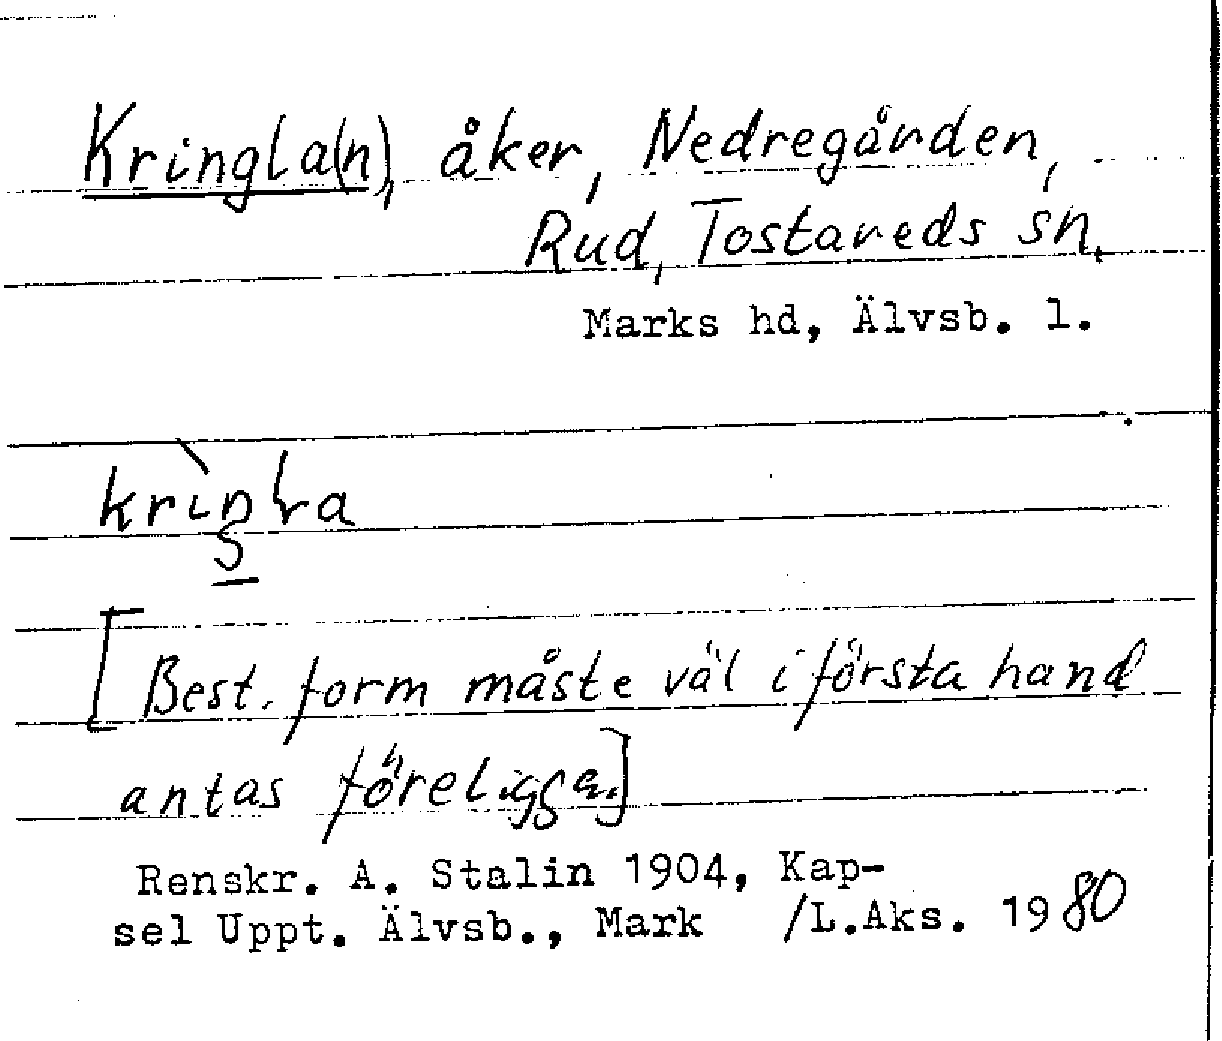 Kringla(n), åker, Nedregården,
Rud, Tostareds sn.
Marks hd, Älvsb. l.
[Best. form måste väl i första hand
antas föreligga.]
Renskr. A. Stalin 1904, Kap-
sel Uppt. Älvsb., Mark /L.Aks. 1980